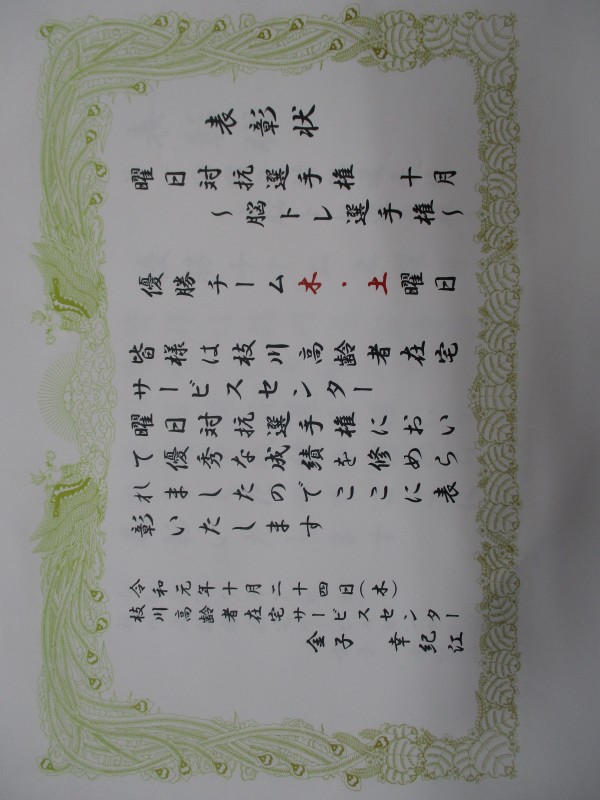 表彰状
曜日対抗選手権 十月
～脳トレ選手権～
優勝チーム木・土曜日
皆様は枝川高齢者在宅
サービスセンター
曜日対抗選手権におい
て優秀な成績を修めら
れましたのでここに表
彰いたします
令和元年十月二十四日(木)
枝川高齢者在宅サービスセンター
金子 幸紀江